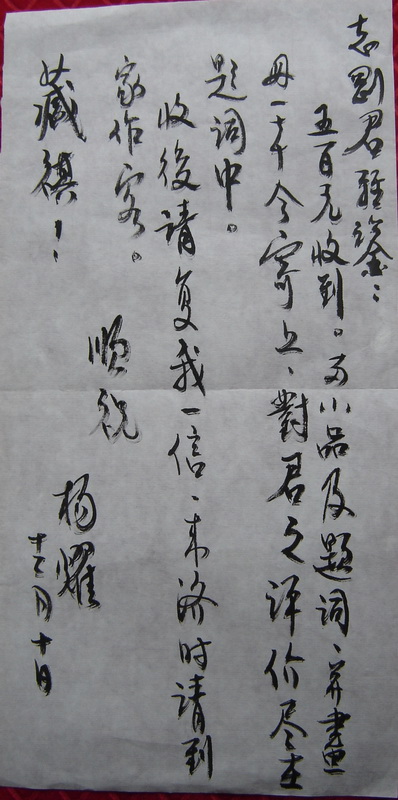 志剛君雅鉴：
五百元收到。两小品及题词、并畫
册一本今寄上、對君之评价尽在
题词中。
收後請复我一信、来济时请到
家作客。
顺祝
藏祺！
杨耀
十二月十日